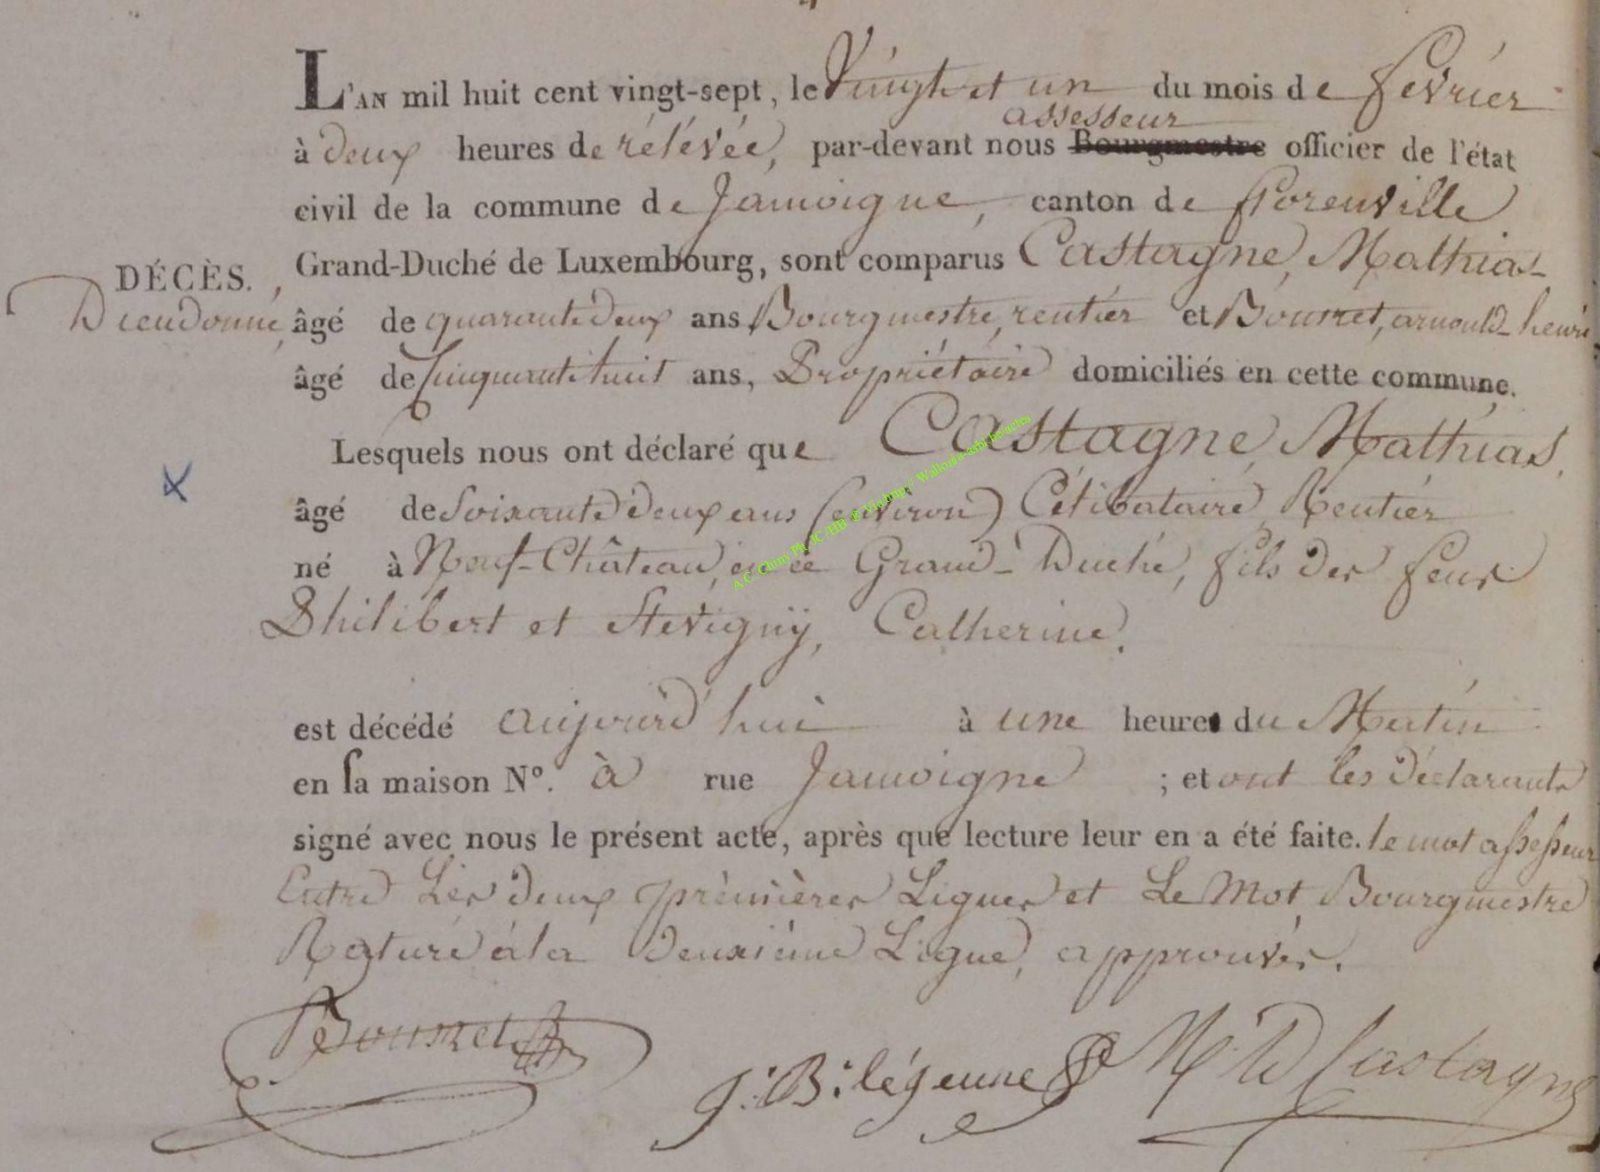 L'AN mil huit cent vingt-sept, le Vingt et un du mois de fevrier
assesseur
à deux heures de rélévée, par-devant nous Bourgmestre officier de l'état
civil de la commune de Jamoigne, canton de florenville
Grand-Duché de Luxembourg, sont comparus Castagne, Mathias
DÉCÈS.
Dieudonné, âgé de quarante deux ans Bourgmestre, rentier et Bournet, arnould henri
âgé de Cinquante huit ans, Propriétaire domiciliés en cette commune.
Lesquels nous ont déclaré que Castagne, Mathias,
âgé de Soixante deux ans (environ) Célibataire, Rentier
né à Neuf-Château, en ce Grand-Duché, fils des feus
Philibert et Stévignÿ, Catherine.
est décédé aujourd'hui à une heure du Matin
en sa maison N°. à rue Jamoigne ; et ont les déclarants
signé avec nous le présent acte, après que lecture leur en a été faite. le mot assesseur
Entre Les deux prèmières Lignes et Le Mot Bourgmestre
Raturé à la deuxième Ligne, approuvés.
Bournet
J: B: léjeune
M D Castagne
A.C. Chiny